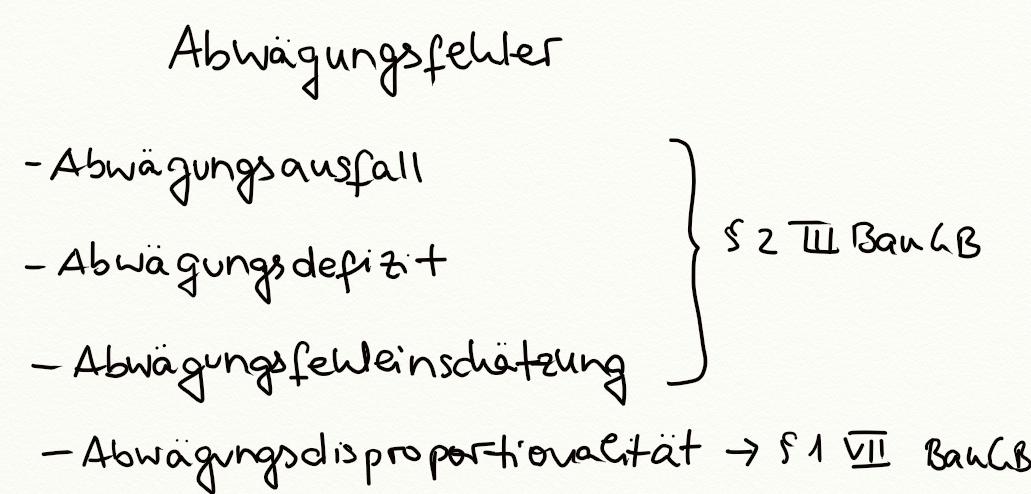 Abwägungsfehler
- Abwägungsausfall
- Abwägungsdefizit
- Abwägungsfehleinschätzung
§ 2 III BauGB
- Abwägungsdisproportionalität → § 1 VII BauGB